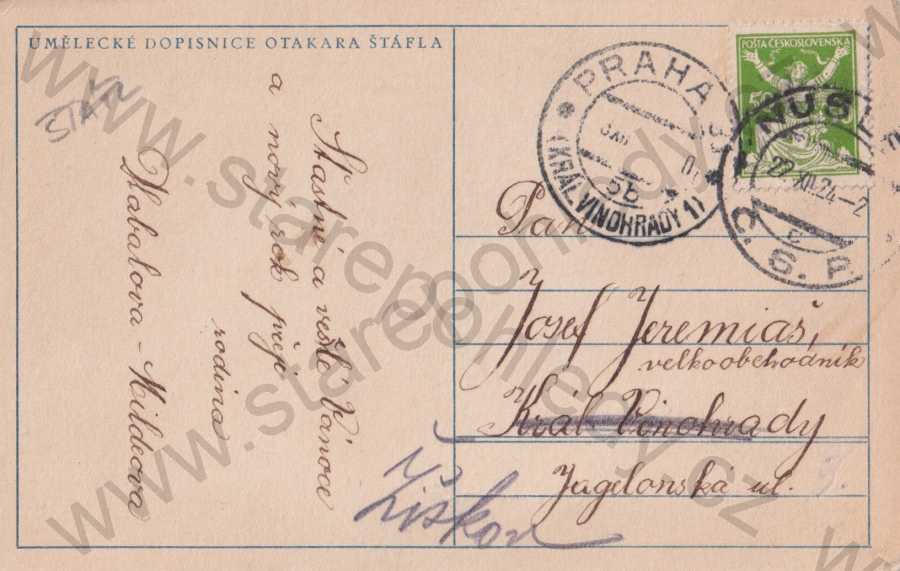 UMĚLECKÉ DOPISNICE OTAKARA ŠTÁFLA
Šťastné a veselé Vánoce
a nový rok přeje
rodina
POŠTA ČESKOSLOVENSKÁ
50
PRAHA
5b
(KRÁL. VINOHRADY 1)
NUSLE
22.XII.24-2
Č.S.P.
Pan
Josef Jeremiaš,
velkoobchodník
Král. Vinohrady
Jagelonská ul.
Žižkov
www.starepohledy.cz